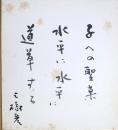 子への聖菓
水平に水平に
道草する